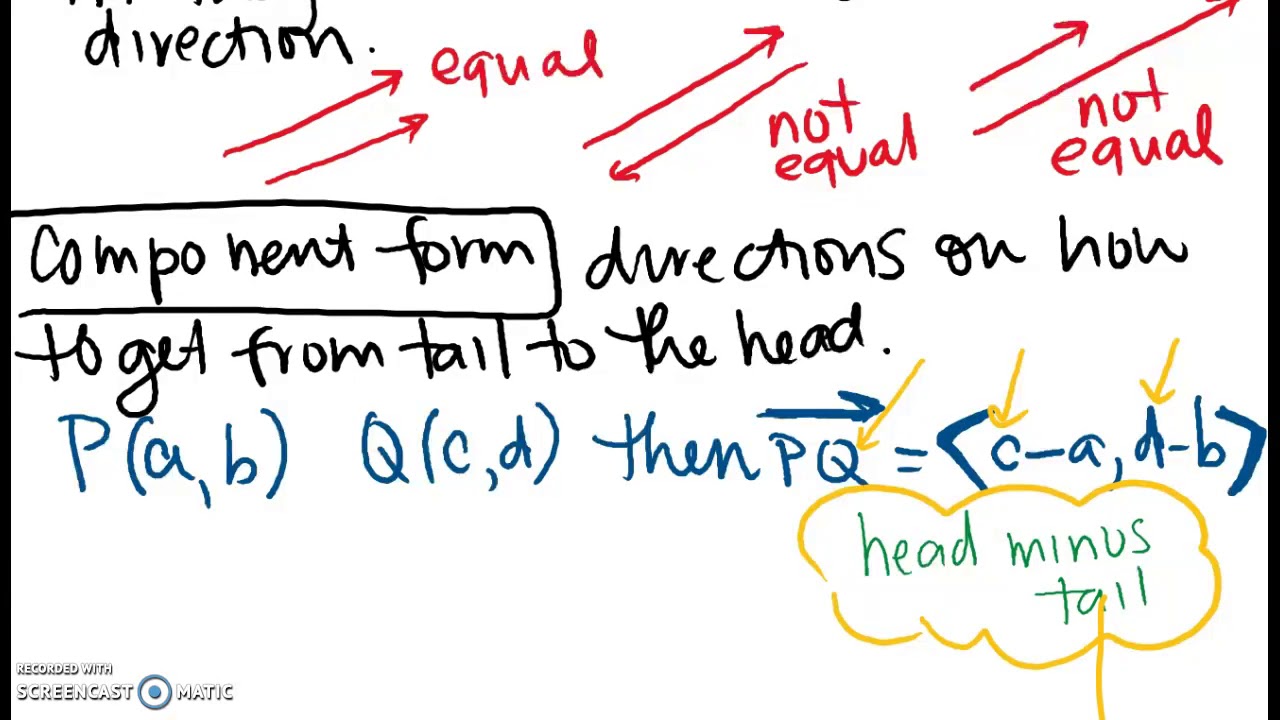 direction.
equal
not
equal
not
equal
Component form directions on how
to get from tail to the head.
P(a,b) Q(c,d) then PQ = <c-a, d-b>
head minus
tail
RECORDED WITH
SCREENCAST MATIC